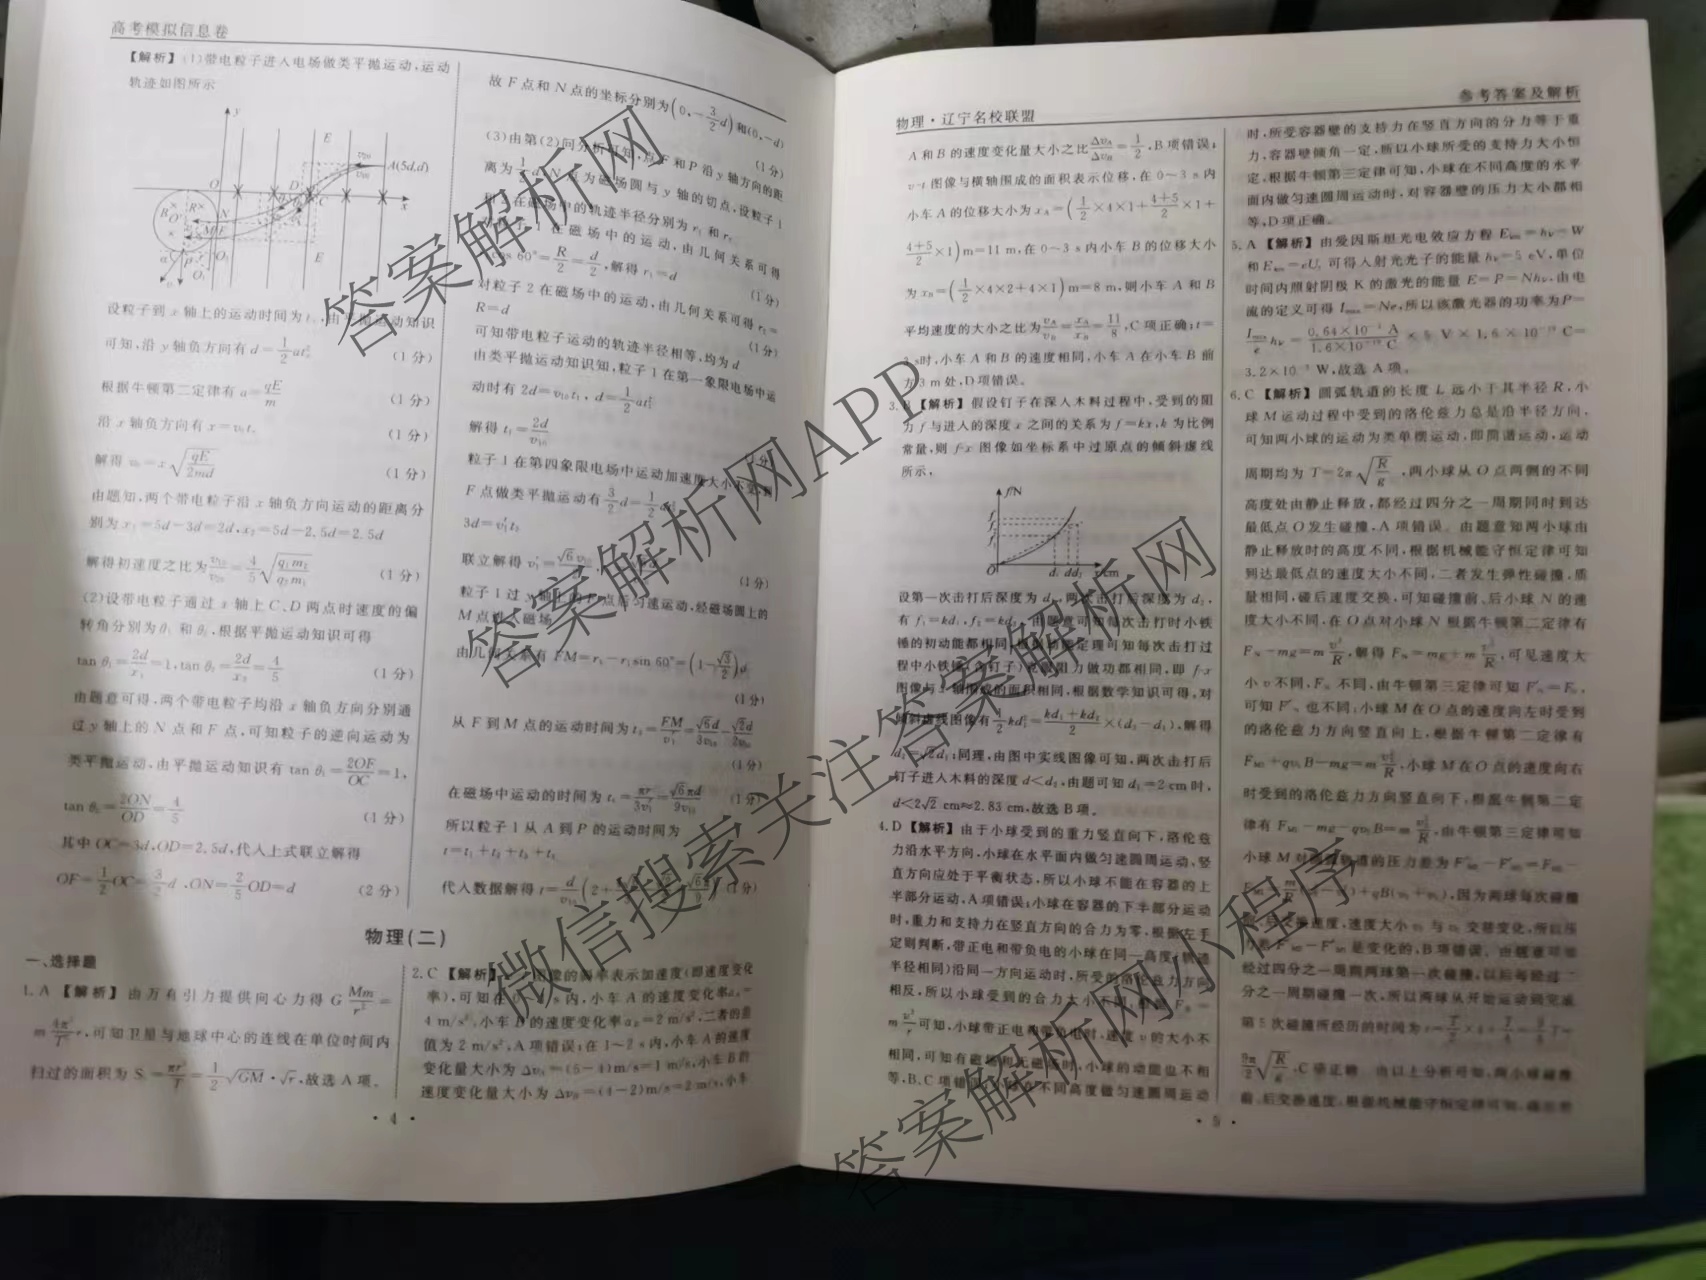 高考模拟信息卷
【解析】(1)带电粒子进入电场做类平抛运动,运动
轨迹如图所示
y
E
A(5d,d)
O
N
D
C
x
M
F
P
E
设粒子到 x 轴上的运动时间为 t,由平抛运动知识
可知,沿 y 轴负方向有 d=1/2 at² (1分)
根据牛顿第二定律有 a=qE/m (1分)
沿 x 轴负方向有 x=v₀t, (1分)
解得 v₀=x√(qE/2md) (1分)
由题知,两个带电粒子沿 x 轴负方向运动的距离分
别为 x₁=5d-3d=2d,x₂=5d-2.5d=2.5d
解得初速度之比为 v₁₀/v₂₀=4/5 √(q₁m₂/q₂m₁) (1分)
(2)设带电粒子通过 x 轴上 C、D 两点时速度的偏
转角分别为 θ₁ 和 θ₂,根据平抛运动知识可得
tan θ₁=2d/x₁=1,tan θ₂=2d/x₂=4/5 (1分)
由题意可得,两个带电粒子均沿 x 轴负方向分别通
过 y 轴上的 N 点和 F 点,可知粒子的逆向运动为
类平抛运动,由平抛运动知识有 tan θ₁=2OF/OC=1,
tan θ₂=2ON/OD=4/5 (1分)
其中 OC=3d,OD=2.5d,代入上式联立解得
OF=1/2 OC=3/2 d,ON=2/5 OD=d (2分)
故 F 点和 N 点的坐标分别为(0,-3/2 d)和(0,-d)
(1分)
(3)由第(2)问分析可知,点 F 和 P 沿 y 轴方向的距
离为 1/2 d,N 点为磁场圆与 y 轴的切点,设粒子 1
在磁场中的轨迹半径分别为 r₁ 和 r₂
1 在磁场中的运动,由几何关系可得
cos 60°=R/2=d/2,解得 r₁=d (1分)
对粒子 2 在磁场中的运动,由几何关系可得 r₂=
R=d (1分)
可知带电粒子运动的轨迹半径相等,均为 d
由类平抛运动知识知,粒子 1 在第一象限电场中运
动时有 2d=v₁₀t₁,d=1/2 at₁²
解得 t₁=2d/v₁₀
粒子 1 在第四象限电场中运动加速度大小
F 点做类平抛运动有 3/2 d=1/2 at₂²
3d=v₁′t₂
联立解得 v₁′=√6v₁₀ (1分)
粒子 1 过 y 轴上的 F 点后匀速运动,经磁场圆上的
M 点进入磁场
由几何关系有 FM=r₁-r₁sin 60°=(1-√3/2)d
(1分)
从 F 到 M 点的运动时间为 t₃=FM/v₁′=√6d/3v₁₀-√2d/2v₁₀
(1分)
在磁场中运动的时间为 t₄=πr/3v₁′=√6πd/9v₁₀ (1分)
所以粒子 1 从 A 到 P 的运动时间为
t=t₁+t₂+t₃+t₄
代入数据解得 t=d/v₁₀(2+ (1分)
物理(二)
一、选择题
1.A 【解析】由万有引力提供向心力得 G Mm/r²=
m 4π²/T² r,可知卫星与地球中心的连线在单位时间内
扫过的面积为 S=πr²/T=1/2 √GM·√r,故选 A 项。
2.C 【解析】 图像的斜率表示加速度(即速度变化
率),可知在 0 s 内,小车 A 的速度变化率 a_A=
4 m/s²,小车 B 的速度变化率 a_B=2 m/s²,二者的差
值为 2 m/s²,A 项错误;在 1~2 s 内,小车 A 的速度
变化量大小为 Δv_A=(5-4)m/s=1 m/s,小车 B 的
速度变化量大小为 Δv_B=(4-2)m/s=2 m/s,小车
· 4 ·
物理·辽宁名校联盟
参考答案及解析
A 和 B 的速度变化量大小之比 Δv_A/Δv_B=1/2,B 项错误;
v-t 图像与横轴围成的面积表示位移,在 0~3 s 内
小车 A 的位移大小为 x_A=(1/2×4×1+(4+5)/2×1+
(4+5)/2×1)m=11 m,在 0~3 s 内小车 B 的位移大小
为 x_B=(1/2×4×2+4×1)m=8 m,则小车 A 和 B
平均速度的大小之比为 v_A/v_B=x_A/x_B=11/8,C 项正确;t=
3 s时,小车 A 和 B 的速度相同,小车 A 在小车 B 前
方 3 m 处,D 项错误。
3.B 【解析】假设钉子在深入木料过程中,受到的阻
力 f 与进入的深度 x 之间的关系为 f=kx,k 为比例
常量,则 f-x 图像如坐标系中过原点的倾斜虚线
所示,
f/N
O
d₁ d d₂ x/cm
设第一次击打后深度为 d₁,两次击打后深度为 d₂,
有 f₁=kd₁,f₂=kd₂,由题意可知每次击打时小铁
锤的初动能都相同,根据动能定理可知每次击打过
程中小铁锤(含钉子)克服阻力做功都相同,即 f-x
图像与 x 轴围成的面积相同,根据数学知识可得,对
倾斜虚线图像有 1/2 kd₁²=(kd₁+kd₂)/2×(d₂-d₁),解得
d₂=√2d₁;同理,由图中实线图像可知,两次击打后
钉子进入木料的深度 d<d₂,由题可知 d₁=2 cm 时,
d<2√2 cm≈2.83 cm,故选 B 项。
4.D 【解析】由于小球受到的重力竖直向下,洛伦兹
力沿水平方向,小球在水平面内做匀速圆周运动,竖
直方向应处于平衡状态,所以小球不能在容器的上
半部分运动,A 项错误;小球在容器的下半部分运动
时,重力和支持力在竖直方向的合力为零,根据左手
定则判断,带正电和带负电的小球在同一高度(轨迹
半径相同)沿同一方向运动时,所受的洛伦兹力方向
相反,所以小球受到的合力大小不同,根据 F=
m v²/r 可知,小球带正电和带负电时,速度 v 的大小不
相同,可知有磁场和无磁场时,小球的动能也不相
等,B、C 项错误;小球在不同高度做匀速圆周运动
时,所受容器壁的支持力在竖直方向的分力等于重
力,容器壁倾角一定,所以小球所受的支持力大小恒
定,根据牛顿第三定律可知,小球在不同高度的水平
面内做匀速圆周运动时,对容器壁的压力大小都相
等,D 项正确。
5.A 【解析】由爱因斯坦光电效应方程 E_km=hν-W
和 E_km=eU_c 可得入射光光子的能量 hν=5 eV,单位
时间内照射阴极 K 的激光的能量 E=P=Nhν,由电
流的定义可得 I_max=Ne,所以该激光器的功率为 P=
I_max/e hν=0.64×10 A/1.6×10⁻¹⁹ C×5 V×1.6×10⁻¹⁹ C=
3.2×10 W,故选 A 项。
6.C 【解析】圆弧轨道的长度 L 远小于其半径 R,小
球 M 运动过程中受到的洛伦兹力总是沿半径方向,
可知两小球的运动为类单摆运动,即简谐运动,运动
周期均为 T=2π√(R/g),两小球从 O 点两侧的不同
高度处由静止释放,都经过四分之一周期同时到达
最低点 O 发生碰撞,A 项错误。由题意知两小球由
静止释放时的高度不同,根据机械能守恒定律可知
到达最低点的速度大小不同,二者发生弹性碰撞,质
量相同,碰后速度交换,可知碰撞前、后小球 N 的速
度大小不同,在 O 点对小球 N 根据牛顿第二定律有
F_N-mg=m v²/R,解得 F_N=mg+m v²/R,可见速度大
小 v 不同,F_N 不同,由牛顿第三定律可知 F′_N=F_N,
可知 F′_N 也不同;小球 M 在 O 点的速度向左时受到
的洛伦兹力方向竖直向上,根据牛顿第二定律有
F_M1+qv₁B-mg=m v₁²/R,小球 M 在 O 点的速度向右
时受到的洛伦兹力方向竖直向下,根据牛顿第二定
律有 F_M2-mg-qv₂B=m v₂²/R,由牛顿第三定律可知
小球 M 对圆弧轨道的压力差为 F′_M2-F′_M1=F_M2-
F_M1= +qB(v₁+v₂),因为两球每次碰撞
前、后交换速度,速度大小 v₁ 与 v₂ 交替变化,所以压
力差 F′_M2-F′_M1 是变化的,B 项错误。由题意可知
经过四分之一周期两球第一次碰撞,以后每经过二
分之一周期碰撞一次,所以两球从开始运动到完成
第 5 次碰撞所经历的时间为 t=T/2×4+T/4=9/4 T=
9π/2 √(R/g),C 项正确。由以上分析可知,两小球碰撞
前、后交换速度,根据机械能守恒定律可知,
· 5 ·
答案解析网
答案解析网APP
微信搜索关注答案解析网
答案解析网小程序